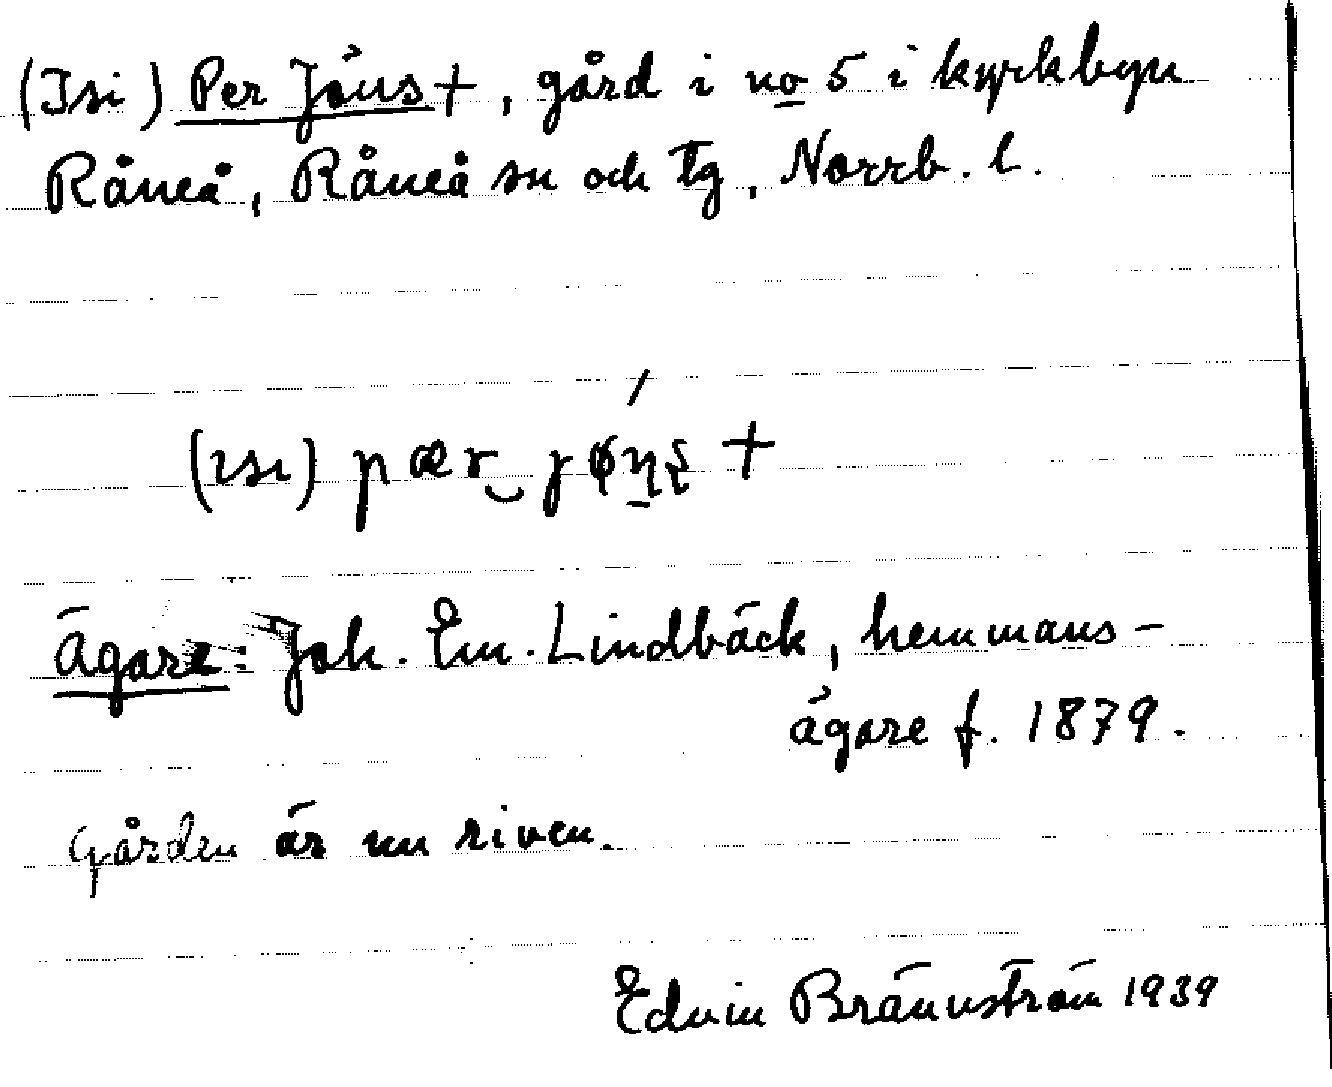 (Isi) Per Jöns +, gård i no 5 i kyrkbyn
Råneå, Råneå sn och tg, Norrb. l.
(ısı) pær‿jǿṇș +
Ägare: Joh. Em. Lindbäck, hemmans-
ägare f. 1879.
Gården är nu riven.
Edvin Brännström 1939